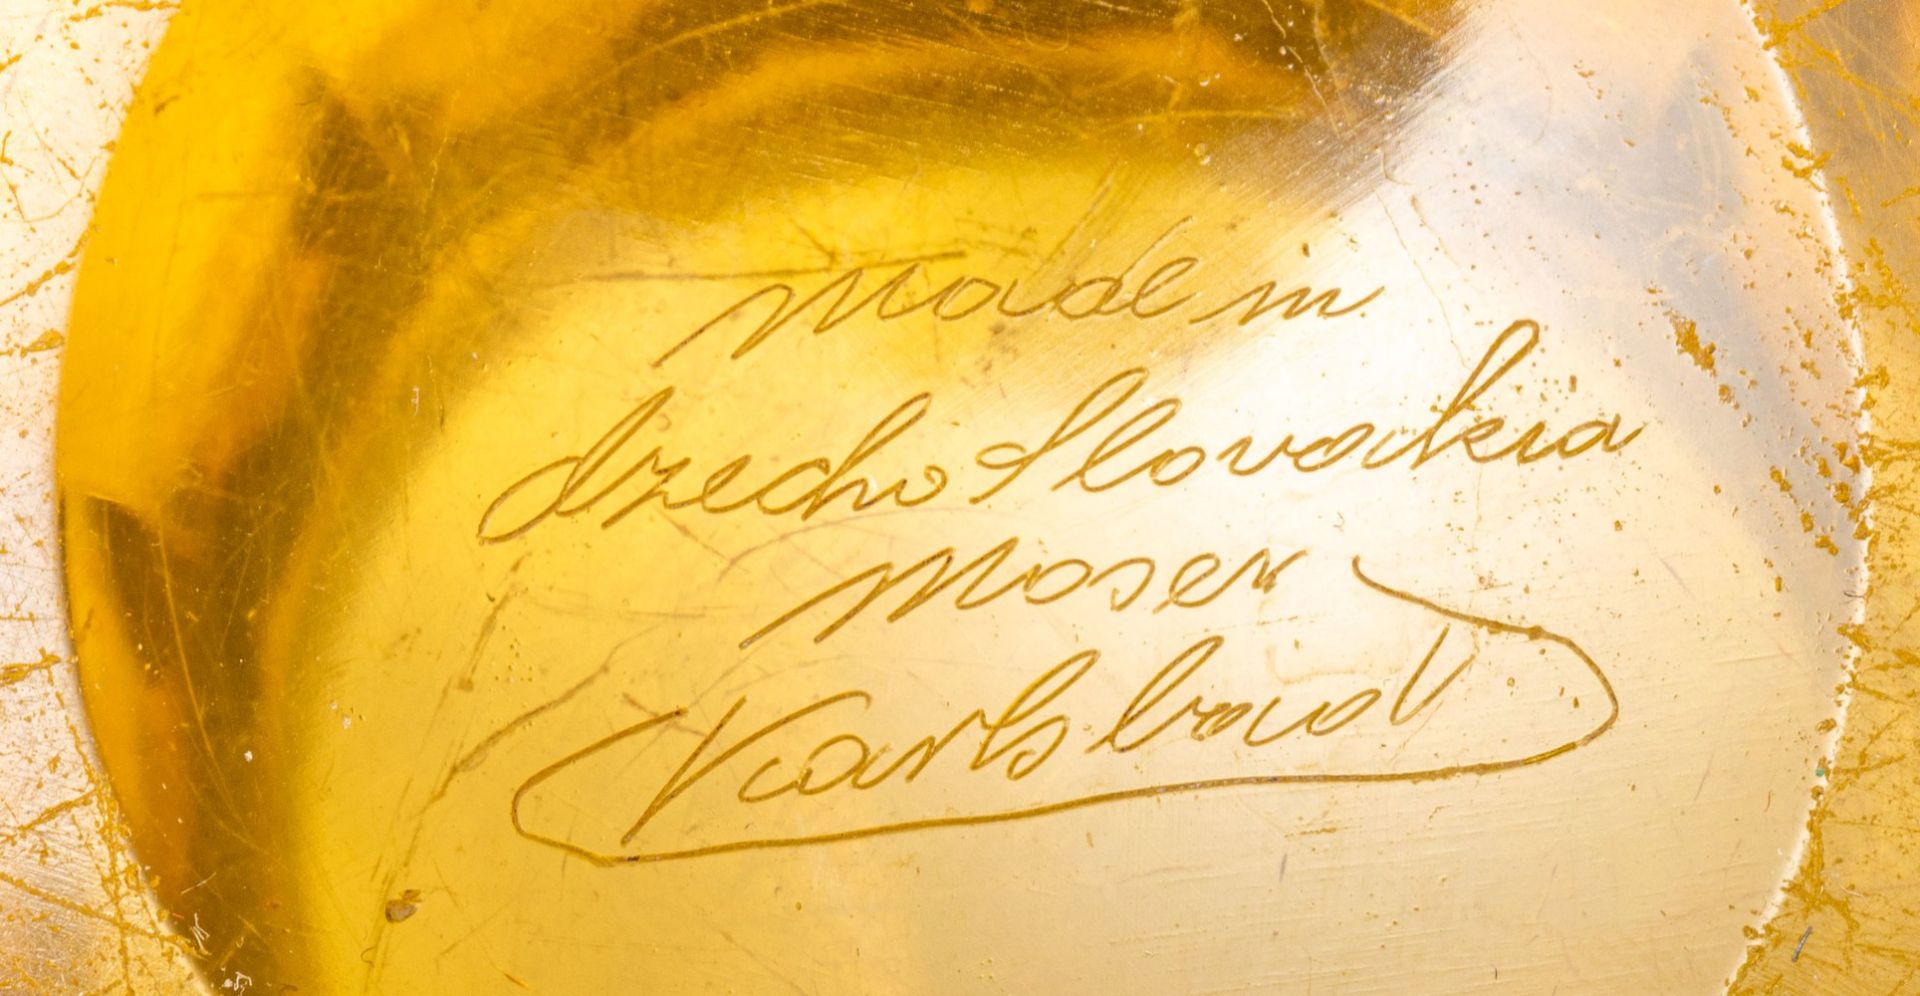 made in
Czecho Slovakia
Moser
Karlsbad